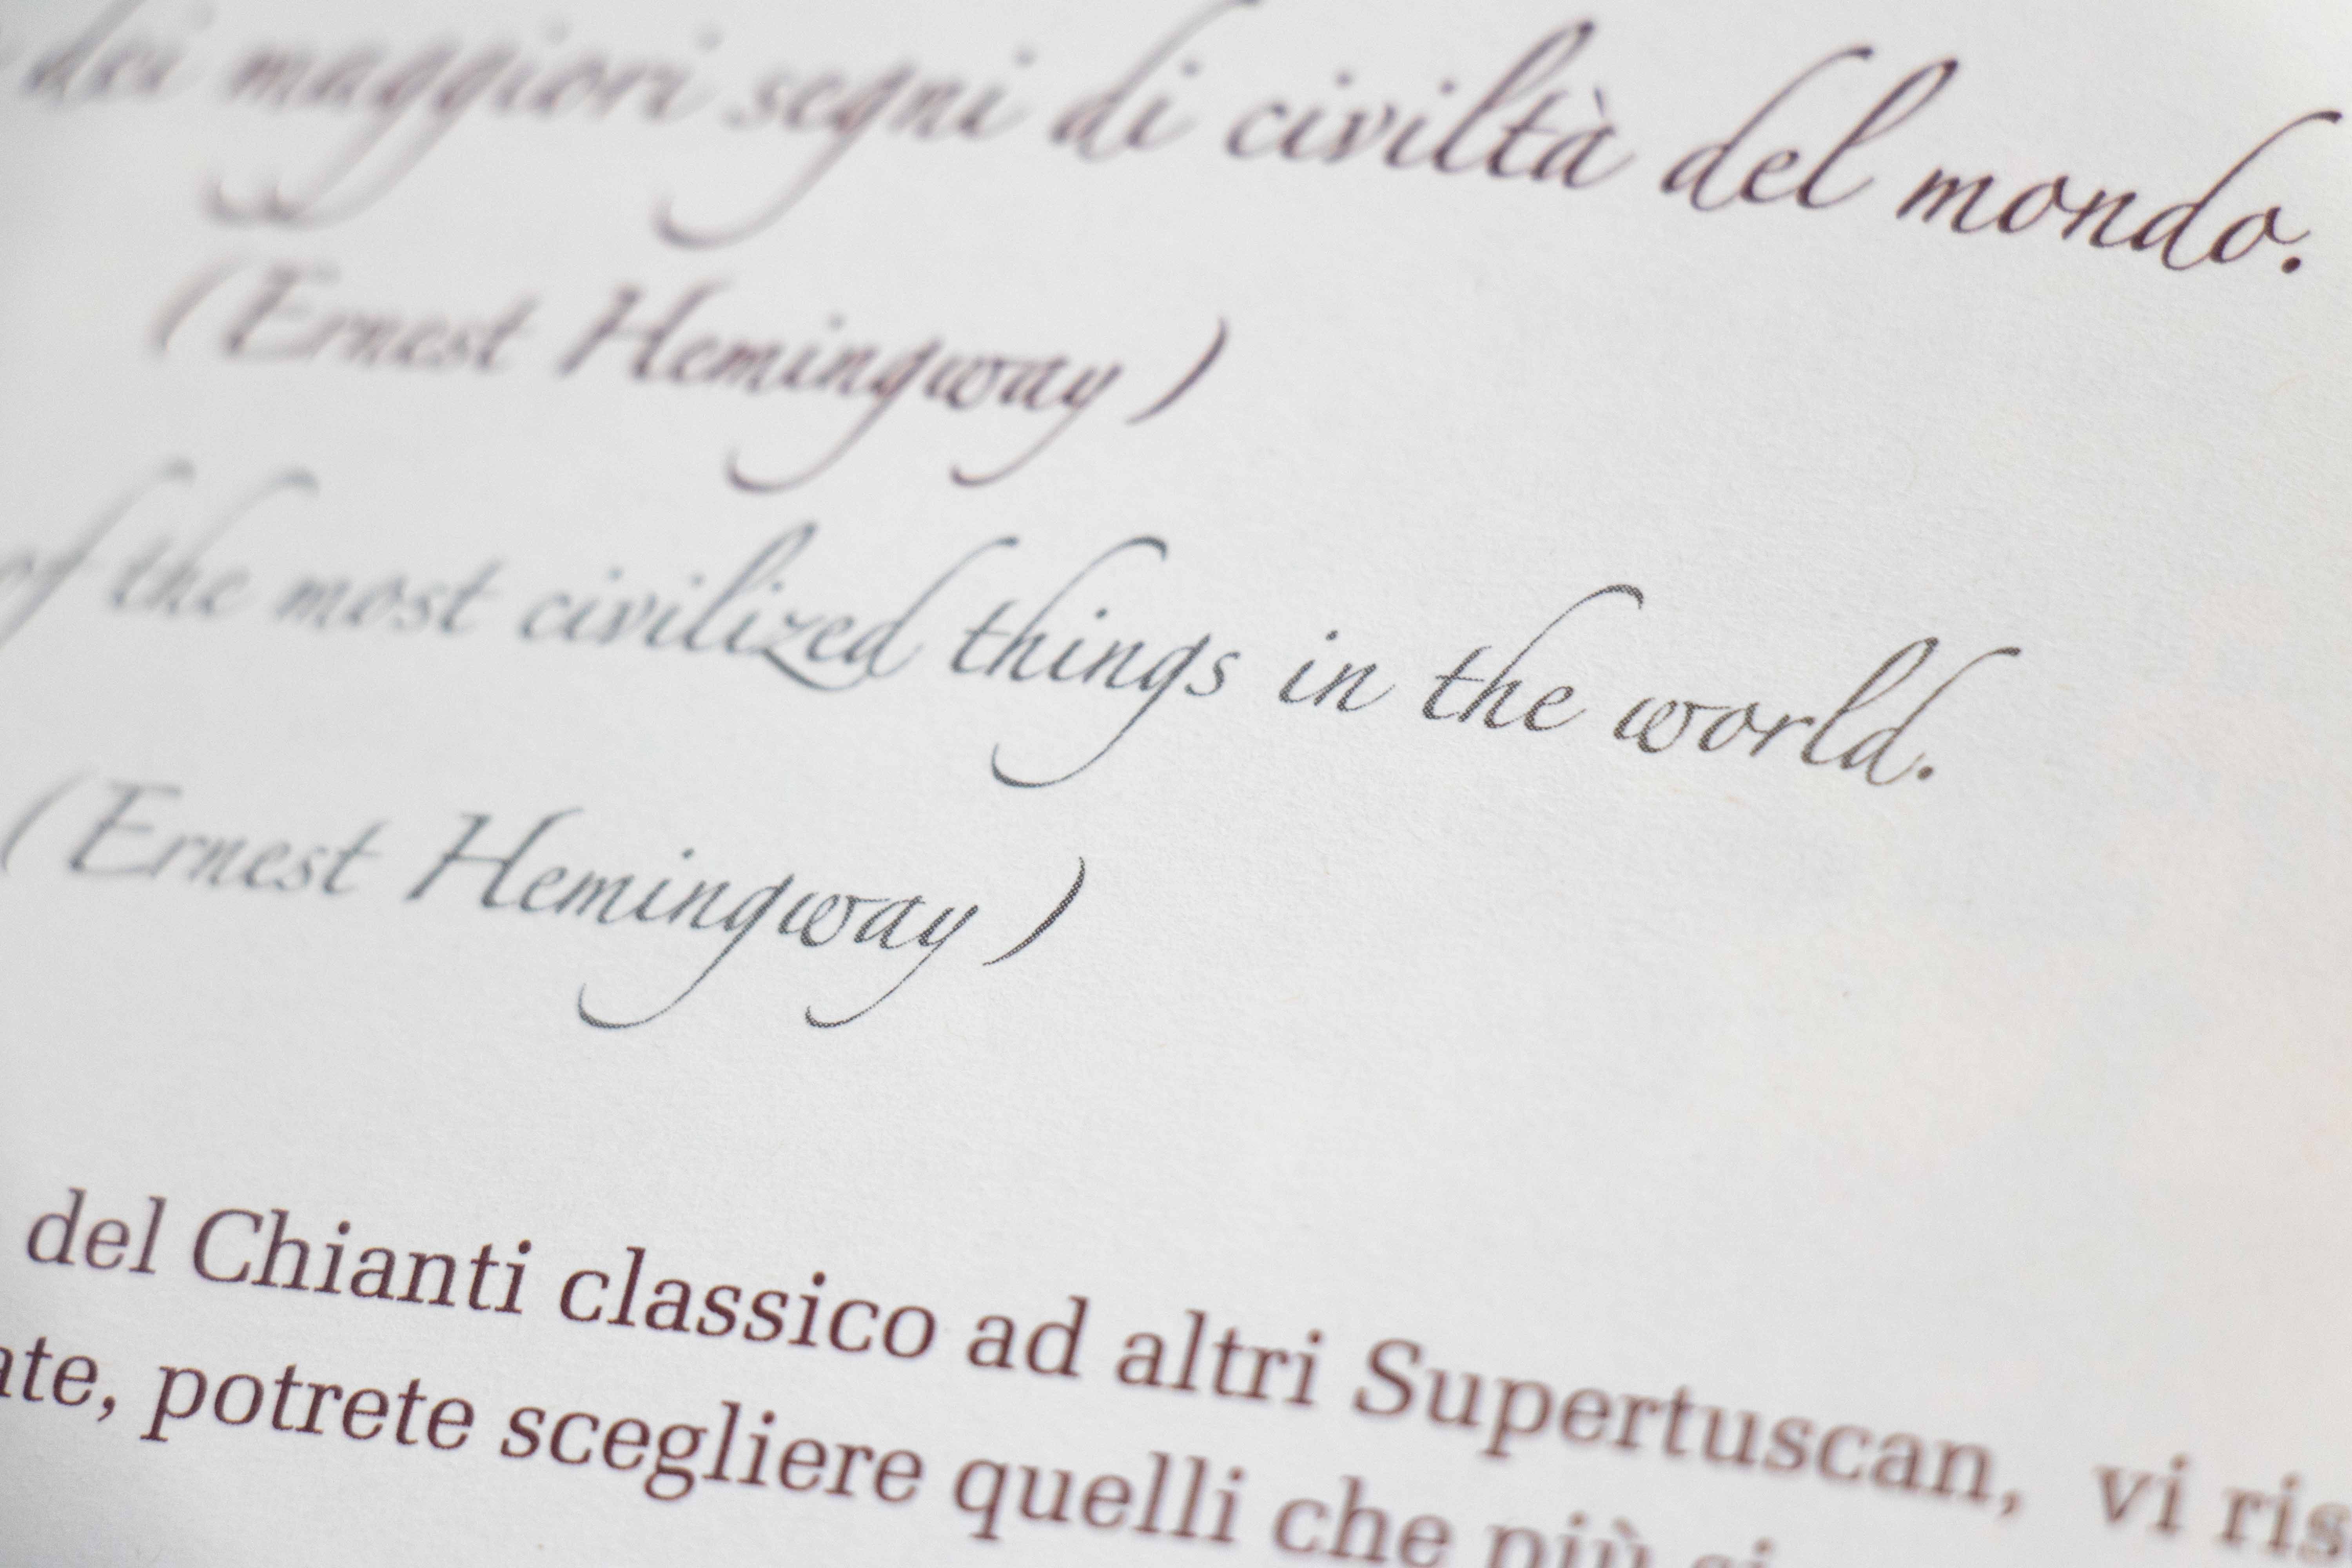 dei maggiori segni di civiltà del mondo.
(Ernest Hemingway )
of the most civilized things in the world.
(Ernest Hemingway )
del Chianti classico ad altri Supertuscan, vi ris
ate, potrete scegliere quelli che più si